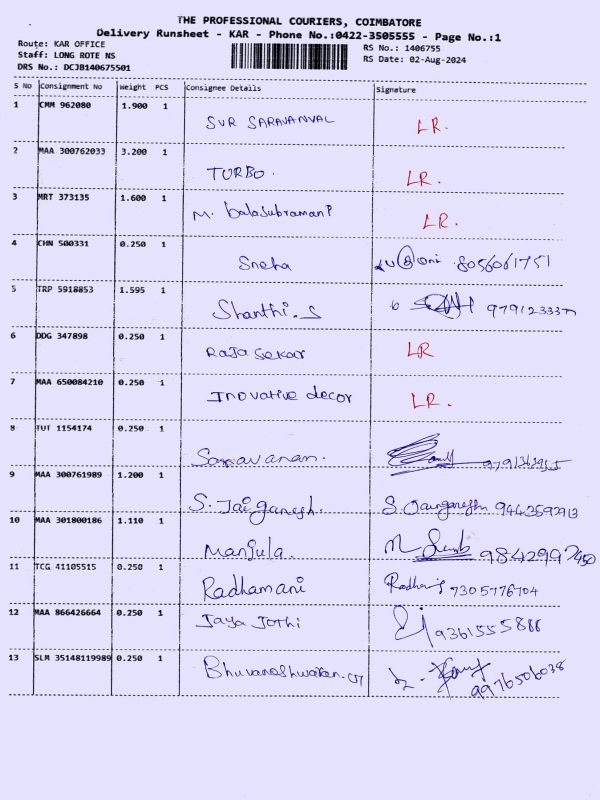 THE PROFESSIONAL COURIERS, COIMBATORE
Delivery Runsheet - KAR - Phone No.:0422-3505555 - Page No.:1
Route: KAR OFFICE RS No.: 1406755
Staff: LONG ROTE NS RS Date: 02-Aug-2024
DRS No.: DCJB140675501
S No Consignment No Weight PCS Consignee Details Signature
1 CMM 962080 1.900 1
SVR SARAVANVAL LR.
2 MAA 300762033 3.200 1
TURBO. LR.
3 MRT 373135 1.600 1
M. balasubramani LR.
4 CHN 500331 0.250 1
Sneha 8056061751
5 TRP 5918853 1.595 1
Shanthi.S
6 DDG 347898 0.250 1
Raja Sekar LR
7 MAA 650084210 0.250 1
Inovative decor LR.
8 TUT 1154174 0.250 1
Saravanan.
9 MAA 300761989 1.200 1
S. Jaiganesh. S. Jaiganesh
10 MAA 301800186 1.110 1
Manjula. 9842997450
11 TCG 41105515 0.250 1
Radhamani 7305776704
12 MAA 866426664 0.250 1
Jaya Jothi
13 SLM 35148119989 0.250 1
9976506038